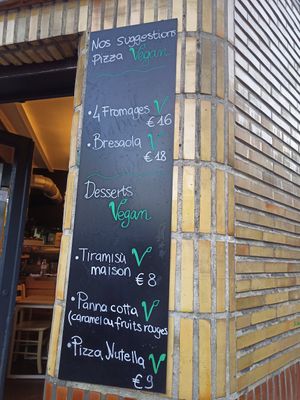 Nos suggestions
Pizza Vegan
• 4 Fromages V
€ 16
• Bresaola V
€ 18
Desserts
Vegan
• Tiramisù V
maison € 8
• Panna cotta V
(caramel ou fruits rouges
• Pizza Nutella V
€ 9